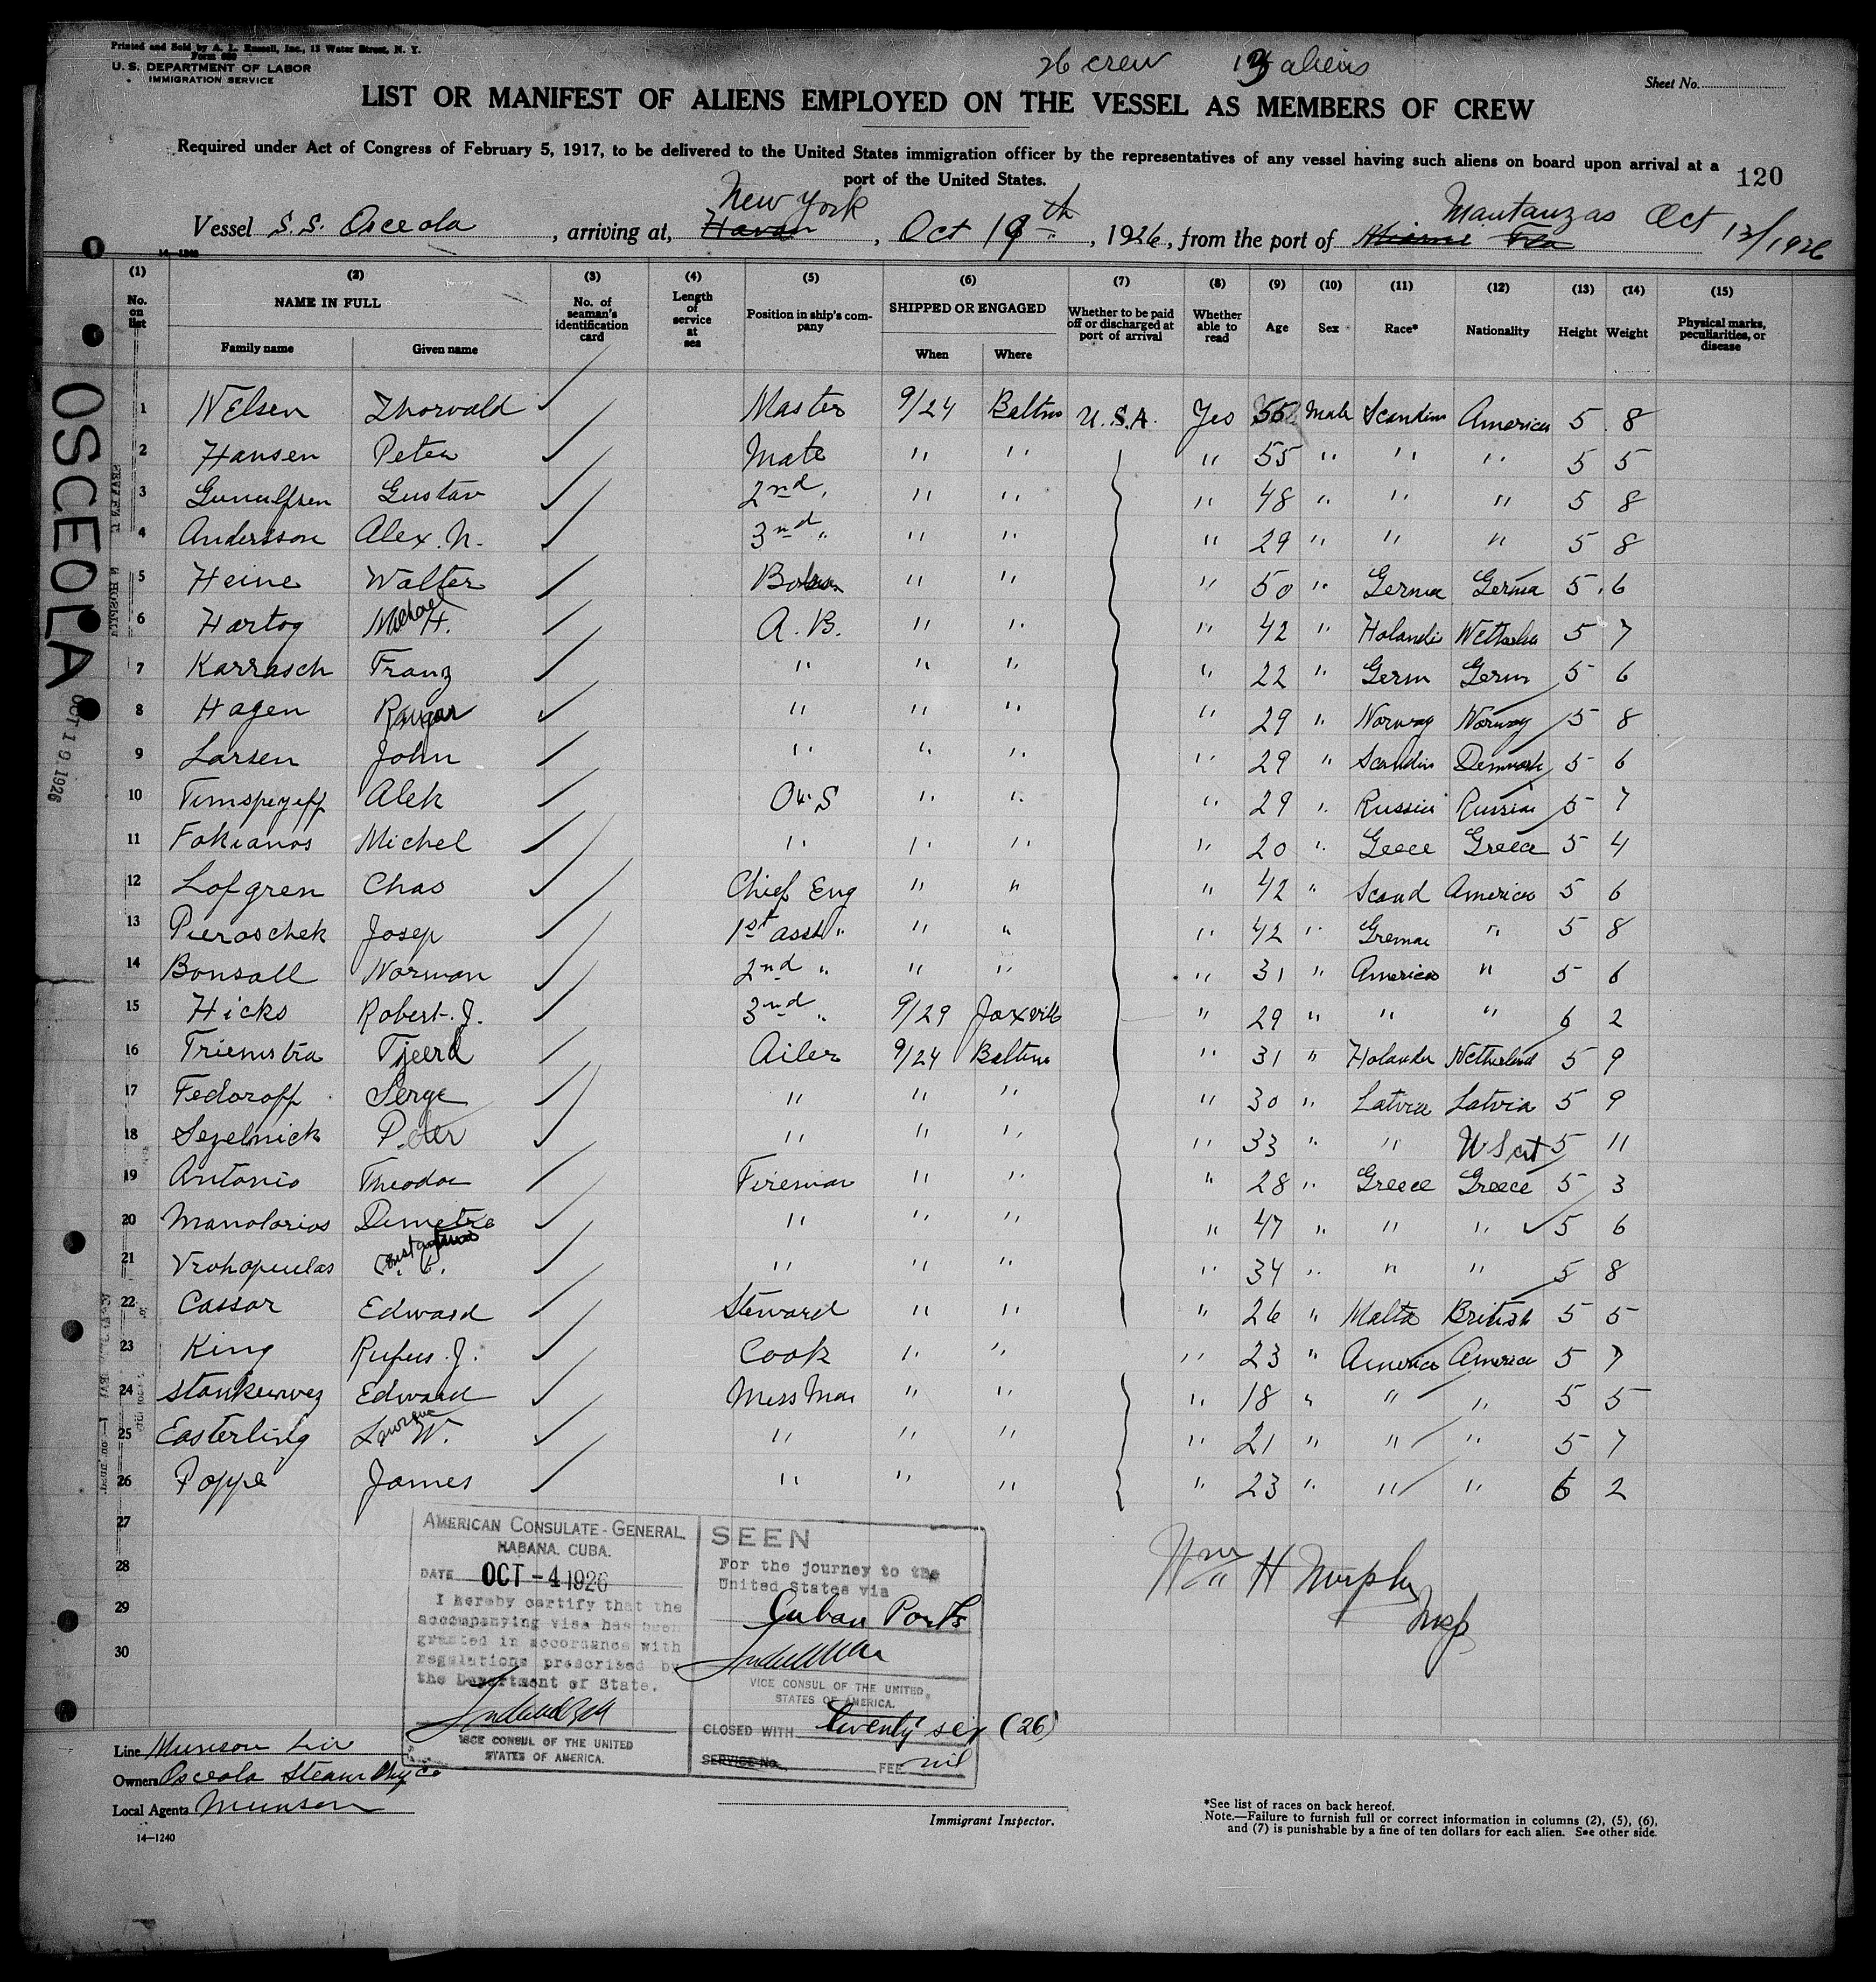 Printed and Sold by A. L. Russell, Inc., 13 Water Street, N. Y.
Form 680
U. S. DEPARTMENT OF LABOR
IMMIGRATION SERVICE
26 crew aliens
Sheet No.
LIST OR MANIFEST OF ALIENS EMPLOYED ON THE VESSEL AS MEMBERS OF CREW
Required under Act of Congress of February 5, 1917, to be delivered to the United States immigration officer by the representatives of any vessel having such aliens on board upon arrival at a
port of the United States.
120
New York Mantanzas Oct 13/1926
Vessel S.S. Osceola, arriving at, Havan, Oct 19th, 1926, from the port of Miami Fla
14-1240
(1) (2) (3) (4) (5) (6) (7) (8) (9) (10) (11) (12) (13) (14) (15)
No. on list NAME IN FULL Family name Given name No. of seaman's identification card Length of service at sea Position in ship's company SHIPPED OR ENGAGED When Where Whether to be paid off or discharged at port of arrival Whether able to read Age Sex Race* Nationality Height Weight Physical marks, peculiarities, or disease
1 Nelsen Thorvald Master 9/24 Baltim U.S.A. Yes 55 Male Scandin American 5 8
2 Hansen Peter Mate " " " 55 " " " 5 5
3 Gustav 2nd " " " 48 " " " 5 8
4 Andersson Alex. N. 3nd " " " " 29 " " " 5 8
5 Heine Walter " " " 50 " Germa Germa 5 6
6 Hartog Michael H. A. B. " " " 42 " Holande 5 7
7 Karrasch Franz " " " " 22 " Germ Germ 5 6
8 Hagen Ragnar " " " " 29 " Norway Norway 5 8
9 Larsen John " " " " 29 " Scandin Denmark 5 6
10 Alek O. S " " " 29 " Russia Russia 5 7
11 Fokianos Michel " " " " 20 " Geece Greece 5 4
12 Lofgren Chas Chief Eng " " " 42 " Scand American 5 6
13 Pieroschek Josep 1st asst " " " " 42 " Greman " 5 8
14 Bonsall Norman 2nd " " " " 31 " American " 5 6
15 Hicks Robert. J. 3nd " 9/29 Jaxville " 29 " " " 6 2
16 Triemstra Tjeerd Oiler 9/24 Baltim " 31 " Holander Netherland 5 9
17 Fedoroff Serge " " " " 30 " Latvia Latvia 5 9
18 Sezelnick Peter " " " " 33 " " U S cit 5 11
19 Antonio Theodor Fireman " " " 28 " Greece Greece 5 3
20 Manolarios Demetre " " " " 47 " " " 5 6
21 Vrohopoulas Constantinos P. " " " " 34 " " " 5 8
22 Cassar Edward Steward " " " 26 " Malta British 5 5
23 King Rufus. J. Cook " " " 23 " America America 5 7
24 Edward Mess Man " " " 18 " " " 5 5
25 Easterling Lawrence W. " " " " 21 " " " 5 7
26 Poppe James " " " " 23 " " " 6 2
27
28
29
30
AMERICAN CONSULATE-GENERAL
HABANA, CUBA.
DATE OCT -4 1926
I hereby certify that the
accompanying visa has been
granted in accordance with
regulations prescribed by
the Department of State.
VICE CONSUL OF THE UNITED
STATES OF AMERICA.
SEEN
For the journey to the
United States via
Cuban Ports
VICE CONSUL OF THE UNITED
STATES OF AMERICA.
CLOSED WITH twenty six (26)
SERVICE No. FEE nil
Wm H Murphy
Insp
Line Munson Line
Owners Osceola Steam Ship Co
Local Agents Munson
14-1240
Immigrant Inspector.
*See list of races on back hereof.
Note.—Failure to furnish full or correct information in columns (2), (5), (6),
and (7) is punishable by a fine of ten dollars for each alien. See other side.
OSCEOLA
OCT 19 1926